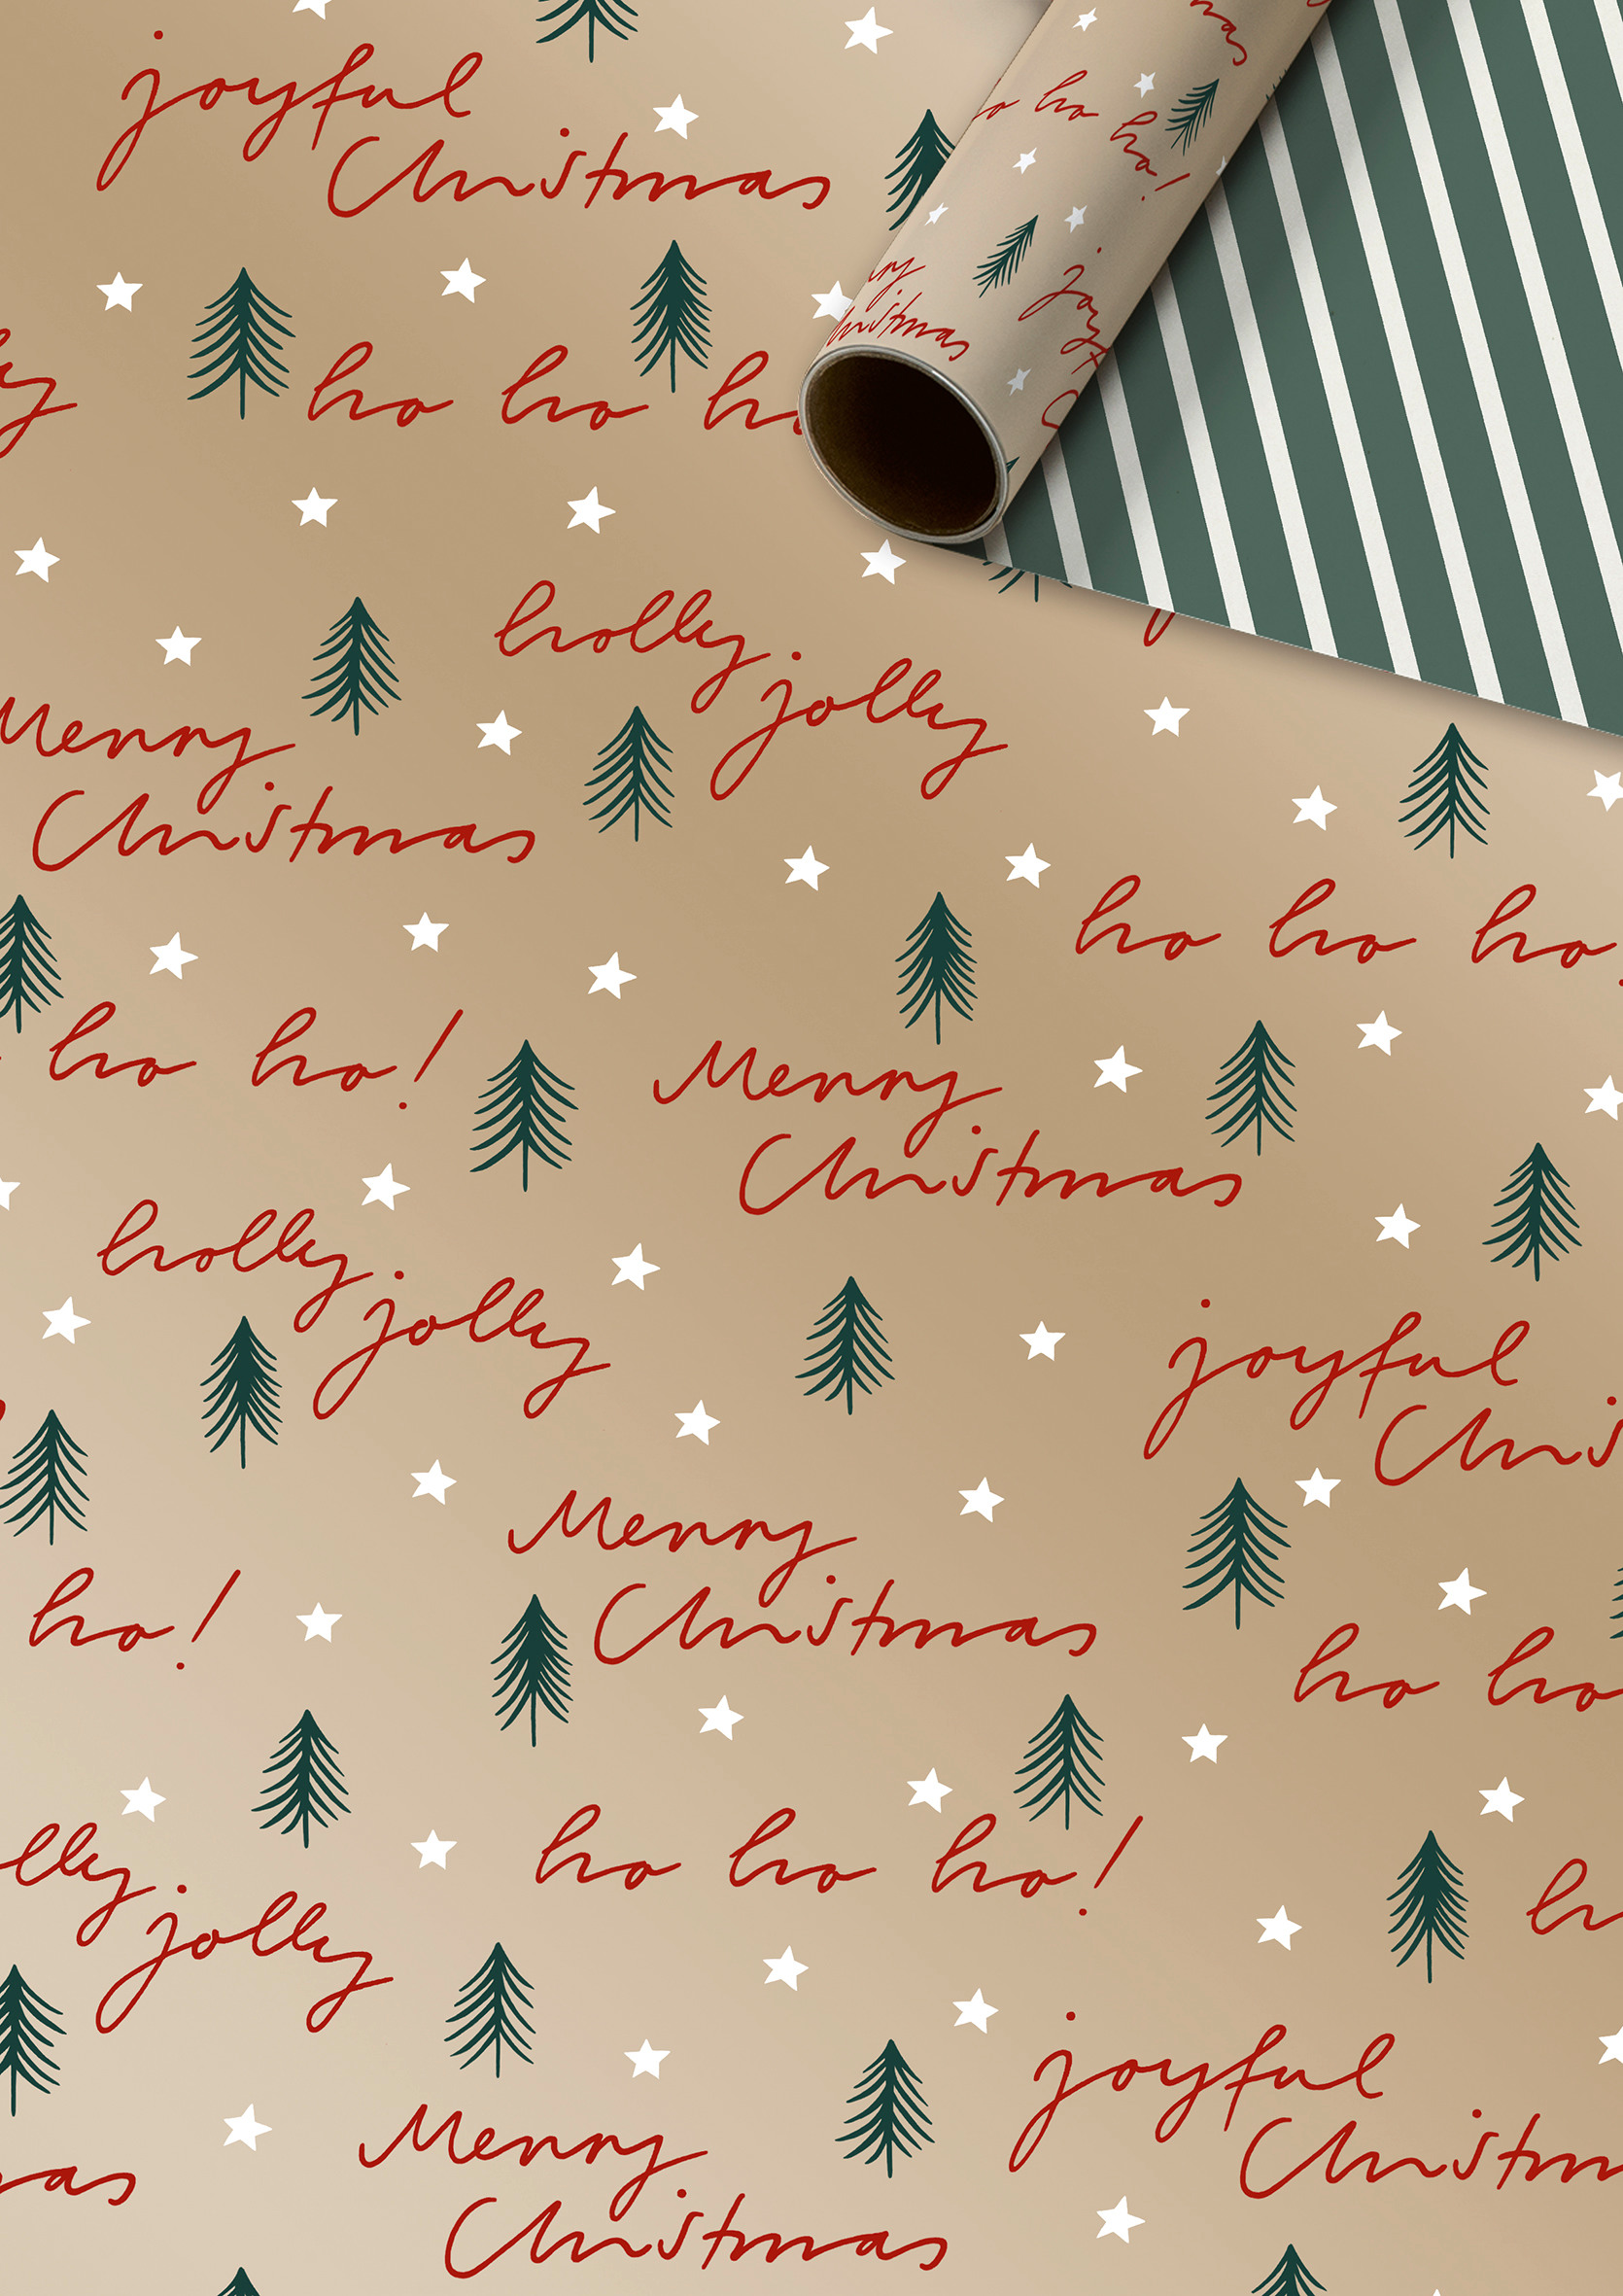 joyful
Christmas
ho ho
ho!
joyful
Christmas
ho ho
holly
jolly
Merry
Christmas
ho ho ho
ho ho!
Merry
Christmas
holly
jolly
joyful
Merry
Christmas
ho!
ho ho
ho ho ho!
jolly
joyful
Merry
Christmas